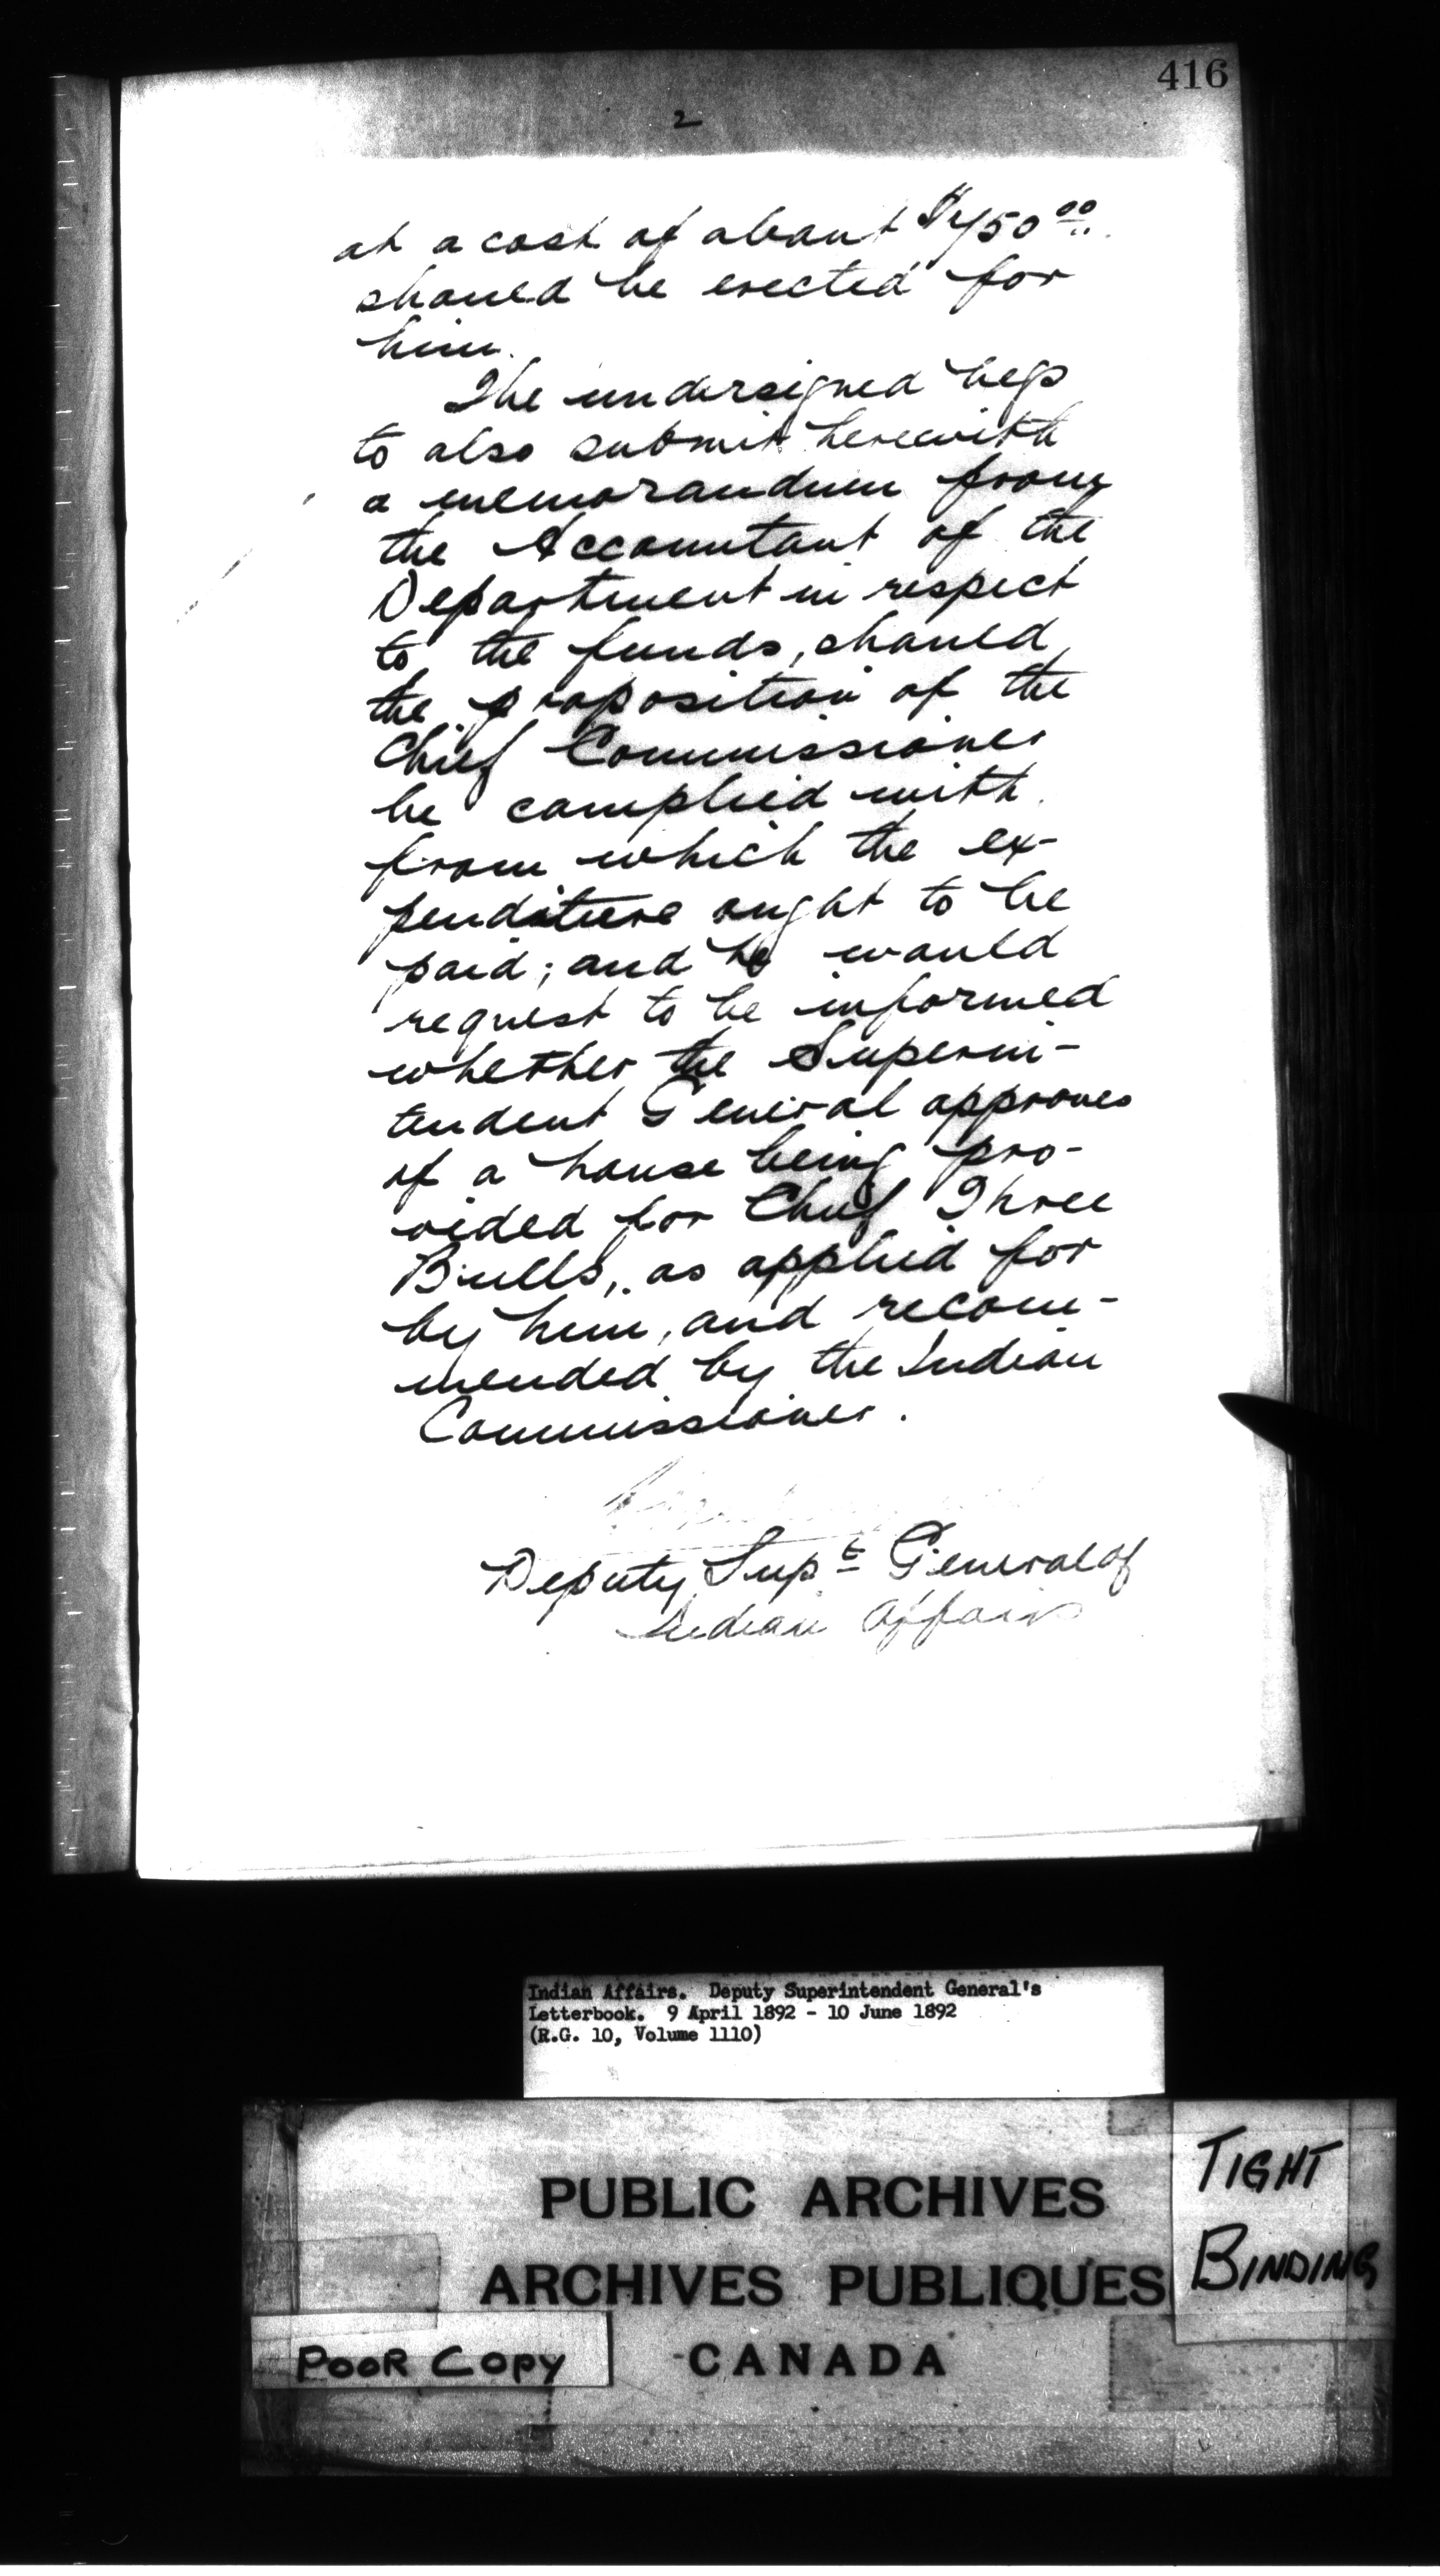 416
2
at a cost of about $450.00
should be erected for
him.
The undersigned begs
to also submit herewith
a memorandum from
the Accountant of the
Department in respect
to the funds, should
the proposition of the
Chief Commissioner
be complied with
from which the ex-
penditure ought to be
paid; and he would
request to be informed
whether the Superin-
tendent General approves
of a house being pro-
vided for Chief Three
Bulls, as applied for
by him, and recom-
mended by the Indian
Commissioner.
Deputy Supt General of
Indian Affairs
Indian Affairs. Deputy Superintendent General's
Letterbook. 9 April 1892 - 10 June 1892
(R.G. 10, Volume 1110)
TIGHT
BINDING
PUBLIC ARCHIVES
ARCHIVES PUBLIQUES
CANADA
POOR COPY